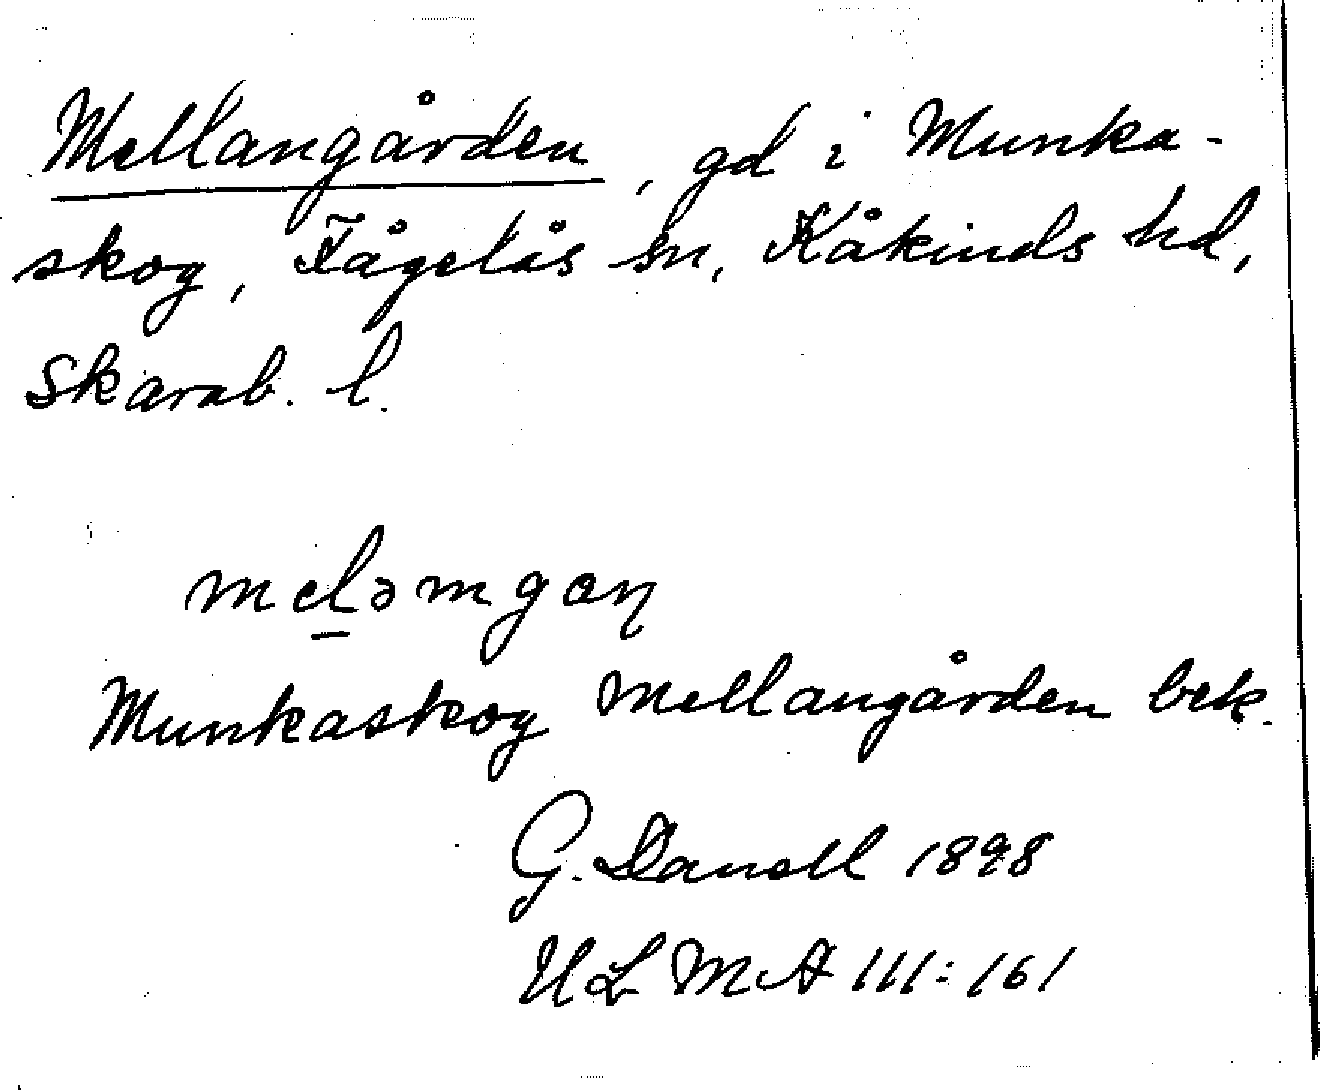 Mellangården, gd i Munka-
skog, Fågelås sn, Kåkinds hd,
Skarab. l.
meləmgaɳ
Munkaskog Mellangården bek.
G. Danell 1898
ULMA 111:161